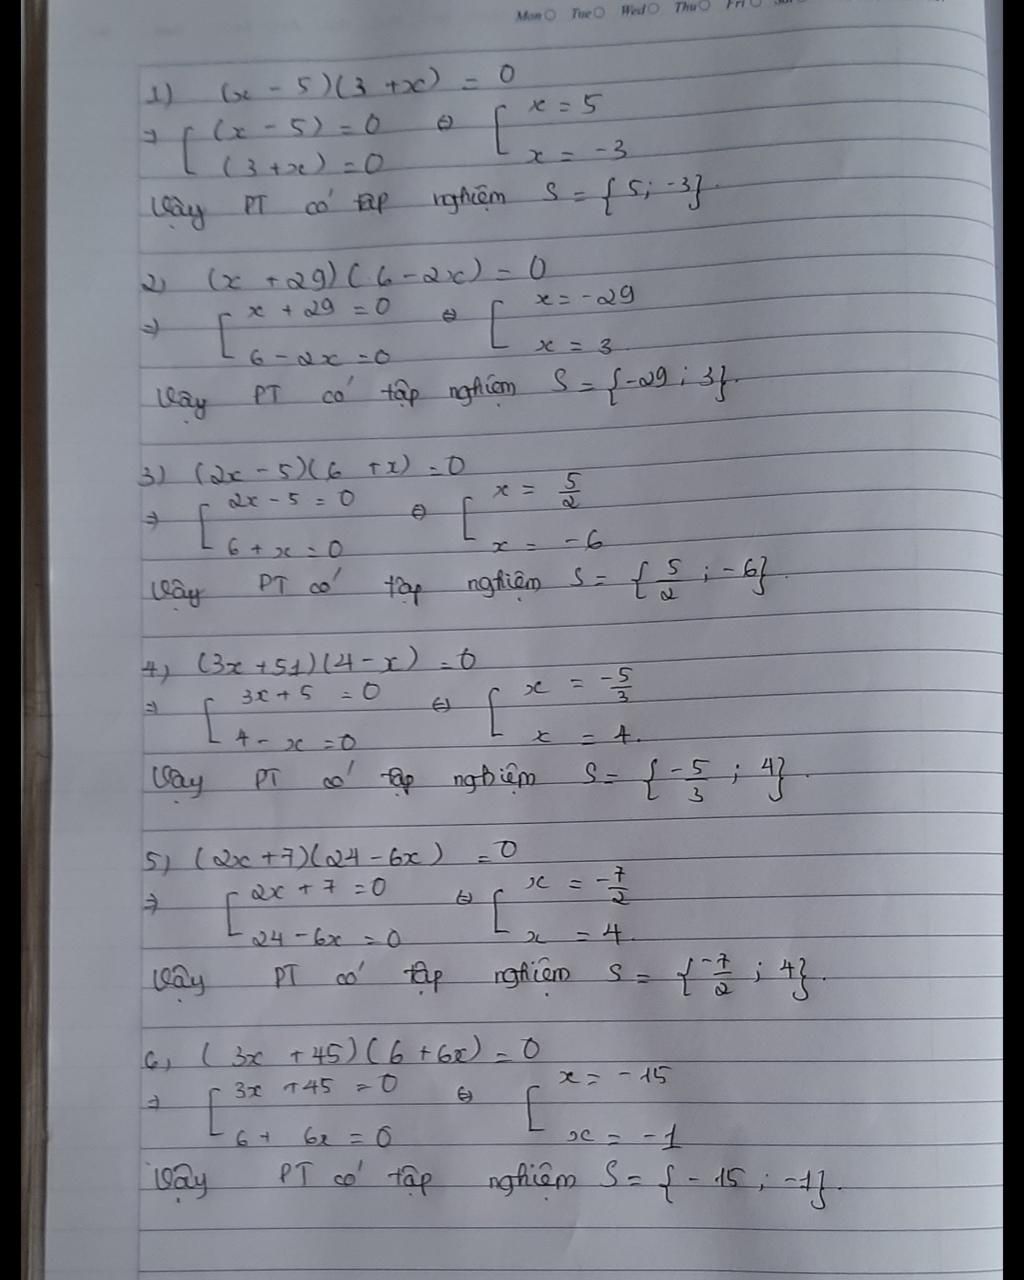 Mon Tue Wed Thu Fri
1) (x - 5)(3 + x) = 0
⇒ [ (x - 5) = 0 ⇔ [ x = 5
(3 + x) = 0 x = -3
Vậy PT có tập nghiệm S = {5; -3}.
2) (x + 29)(6 - 2x) = 0
⇒ [ x + 29 = 0 ⇔ [ x = -29
6 - 2x = 0 x = 3
Vậy PT có tập nghiệm S = {-29; 3}.
3) (2x - 5)(6 + x) = 0
⇒ [ 2x - 5 = 0 ⇔ [ x = 5/2
6 + x = 0 x = -6
Vậy PT có tập nghiệm S = {5/2; -6}.
4) (3x + 51)(4 - x) = 0
⇒ [ 3x + 5 = 0 ⇔ [ x = -5/3
4 - x = 0 x = 4.
Vậy PT có tập nghiệm S = {-5/3; 4}.
5) (2x + 7)(24 - 6x) = 0
⇒ [ 2x + 7 = 0 ⇔ [ x = -7/2
24 - 6x = 0 x = 4.
Vậy PT có tập nghiệm S = {-7/2; 4}.
6) (3x + 45)(6 + 6x) = 0
⇒ [ 3x + 45 = 0 ⇔ [ x = -15
6 + 6x = 0 x = -1
Vậy PT có tập nghiệm S = {-15; -1}.